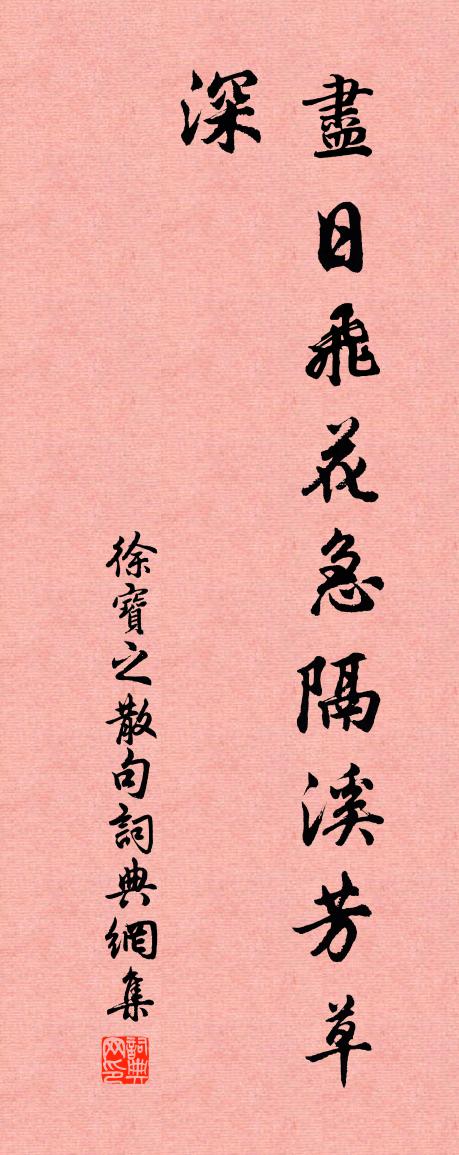 盡日飛花急隔溪芳草
深
徐寶之散句詞典網集
詞典网印